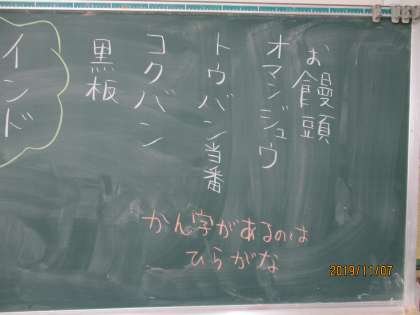 お饅頭
オマンジュウ
トウバン当番
コクバン
黒板
インド
かん字があるのは
ひらがな
2019/11/07